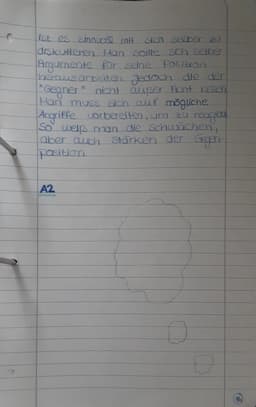 ist es sinnvoll mit sich selber zu
diskutieren. Man sollte sich selber
Argumente für seine Position
herausarbeiten jedoch die der
"Gegner" nicht außer Acht lassen
Man muss sich auf mögliche
Angriffe vorbereiten, um zu
So weiß man die Schwächen,
aber auch Stärken der Gegen-
position.
A2